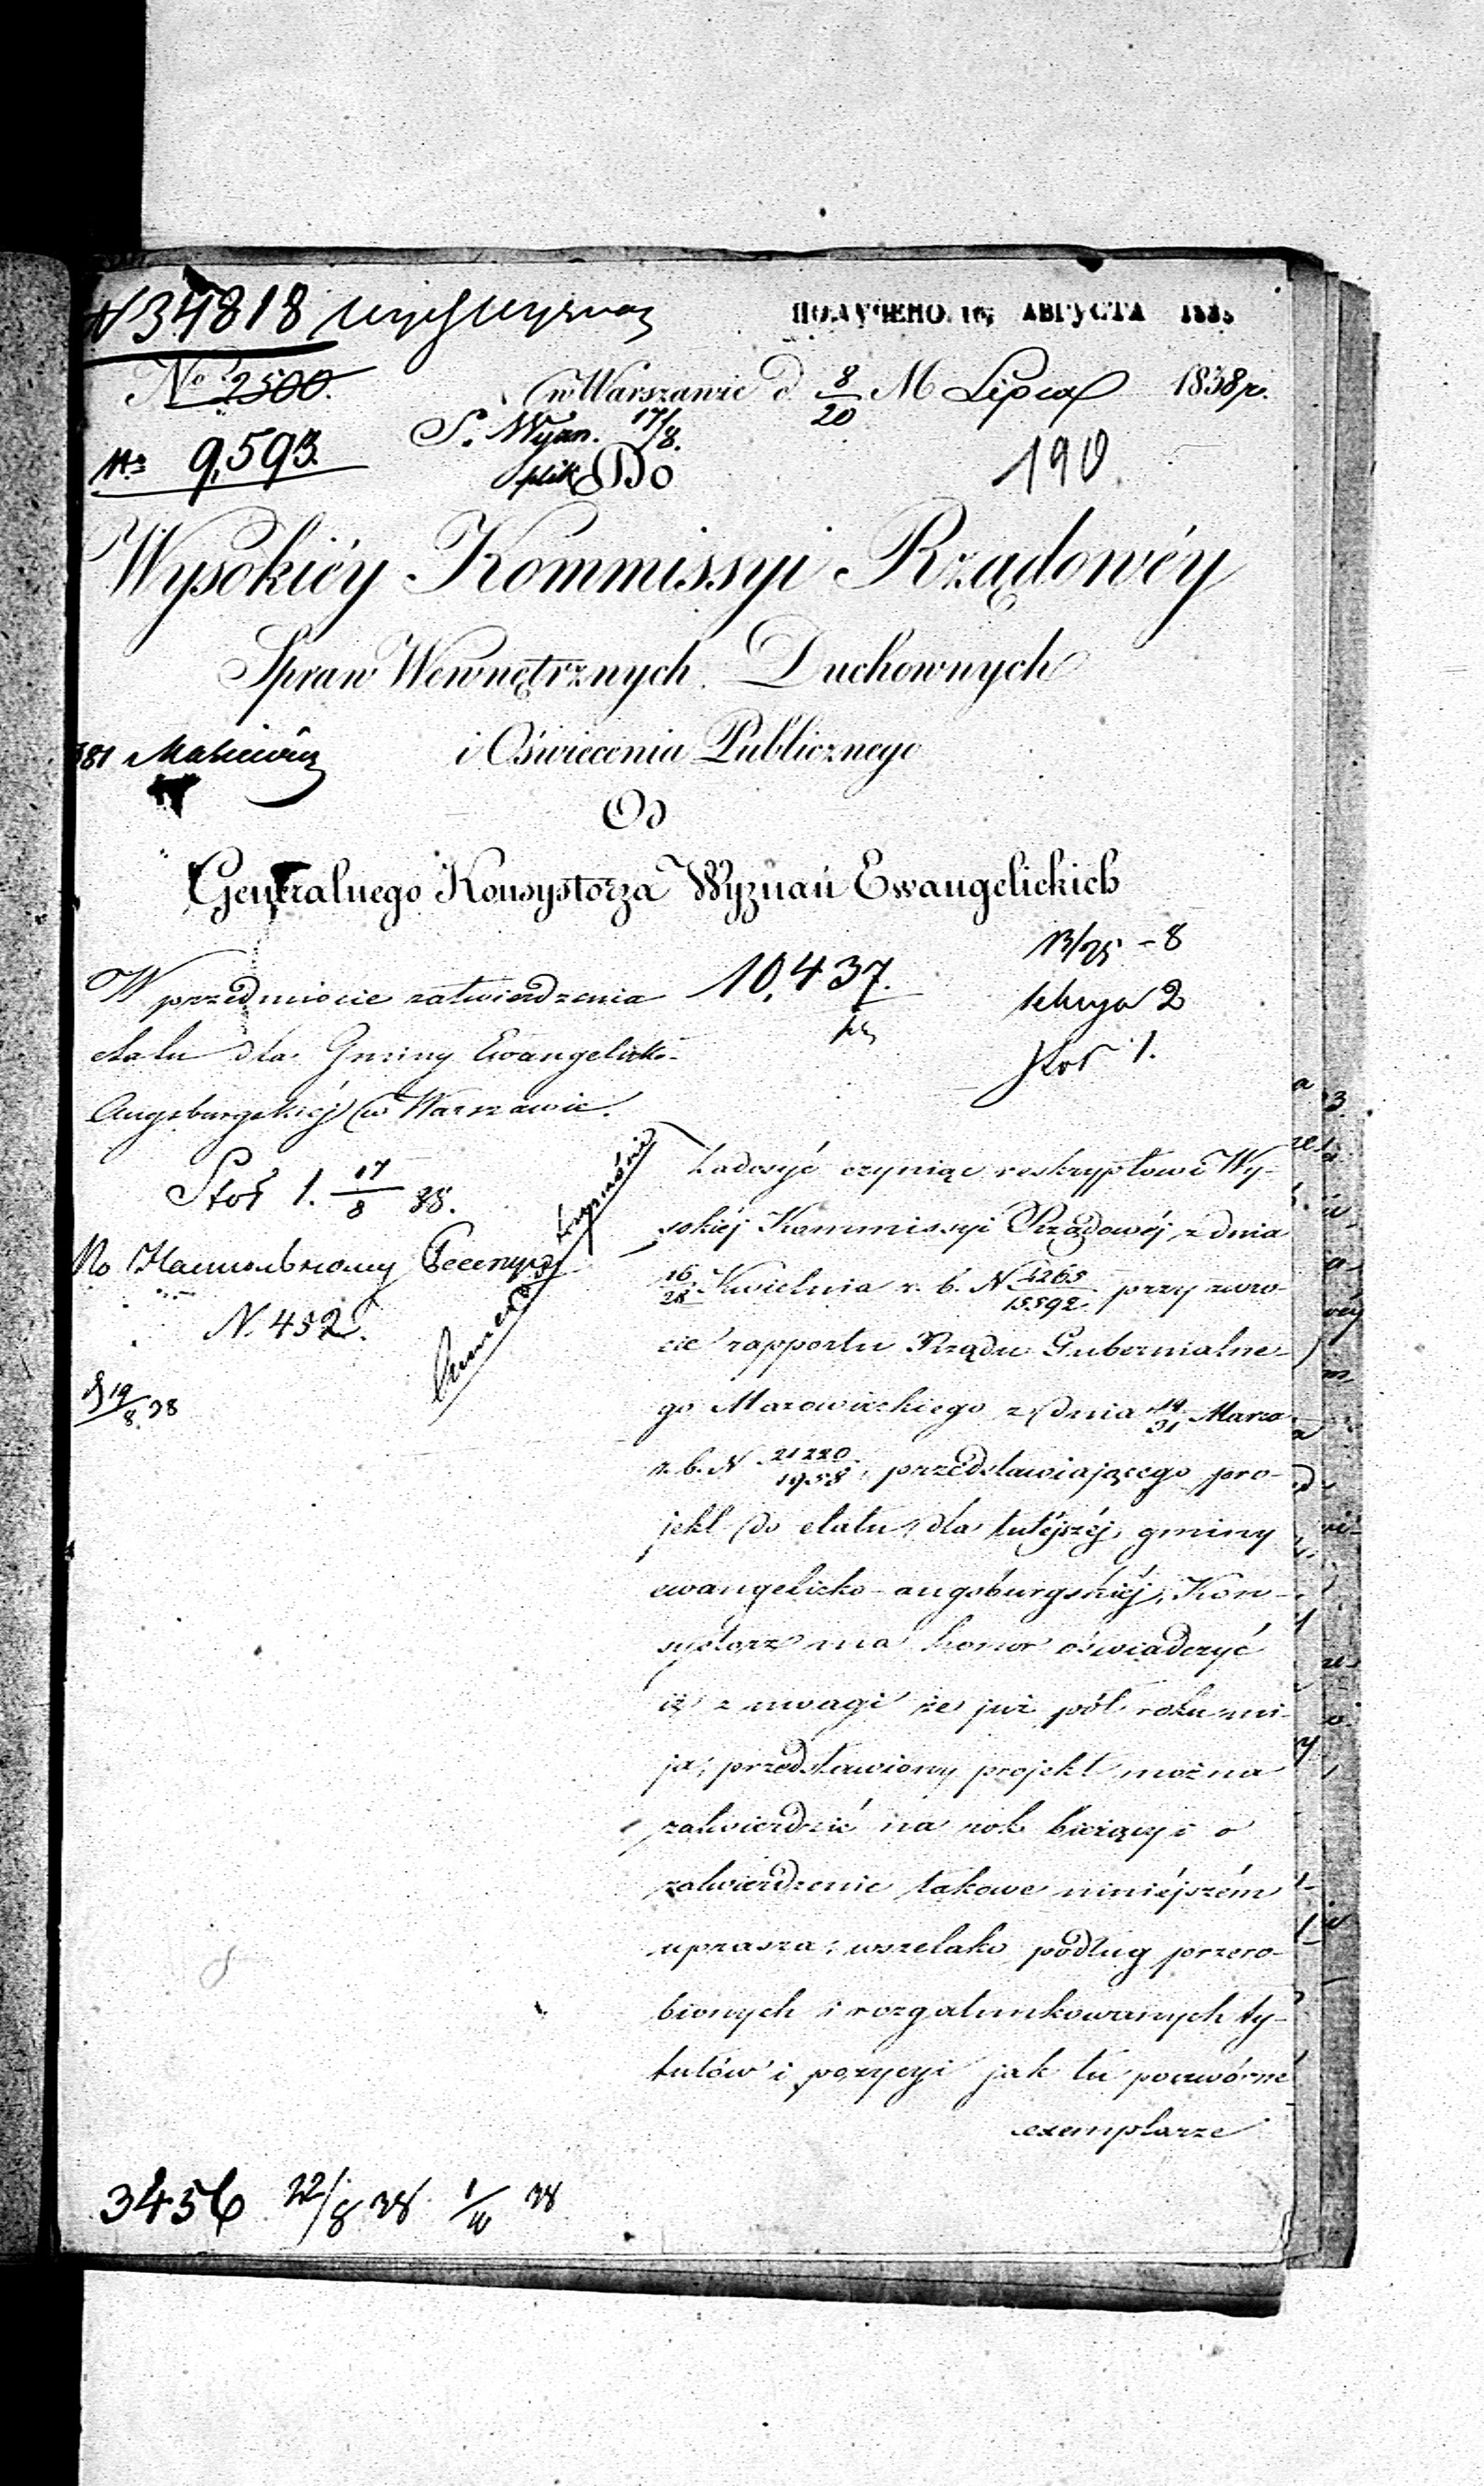 N 34818
ПОЛУЧЕНО 16 АВГУСТА 1838
No 2500.
w Warszawie d 8/20 M Lipca 1838 r.
S. Wyzn. 17/8.
No 9,593.
plik Do
190
Wysokiéy Kommissyi Rządowéy
Spraw Wewnętrznych Duchownych
381
i Oświecenia Publicznego
Od
Generalnego Konsystorza Wyznań Ewangelickich
13/25 - 8
W przedmiocie zatwierdzenia
10,437.
2
etatu dla Gminy Ewangelicko-
Stoł 1.
Augsburgskiéj w Warszawie.
Stoł 1. 17/8 38.
N. 452.
19/8 38
Zadosyć czyniąc reskryptowi Wy-
sokiéj Kommissyi Rządowéj z dnia
16/28 Kwietnia r. b. N 4265/15592 przy zwro-
cie rapportu Rządu Gubernialne-
go Mazowieckiego z dnia 19/31 Marca
r. b. N 21220/1958, przedstawiającego pro-
jekt do etatu dla tutéjszéj gminy
ewangelicko-augsburgskiéj, Kon-
systorz ma honor oświadczyć
iż z uwagi że już pół roku mi-
ja, przedstawiony projekt można
zatwierdzić na rok bieżący i o
zatwierdzenie takowe niniéjszém
uprasza; wszelako podług przero-
bionych i rozgatunkowanych ty-
tułów i pozycyi jak tu poczwórne
exemplarze
3456 22/8 38